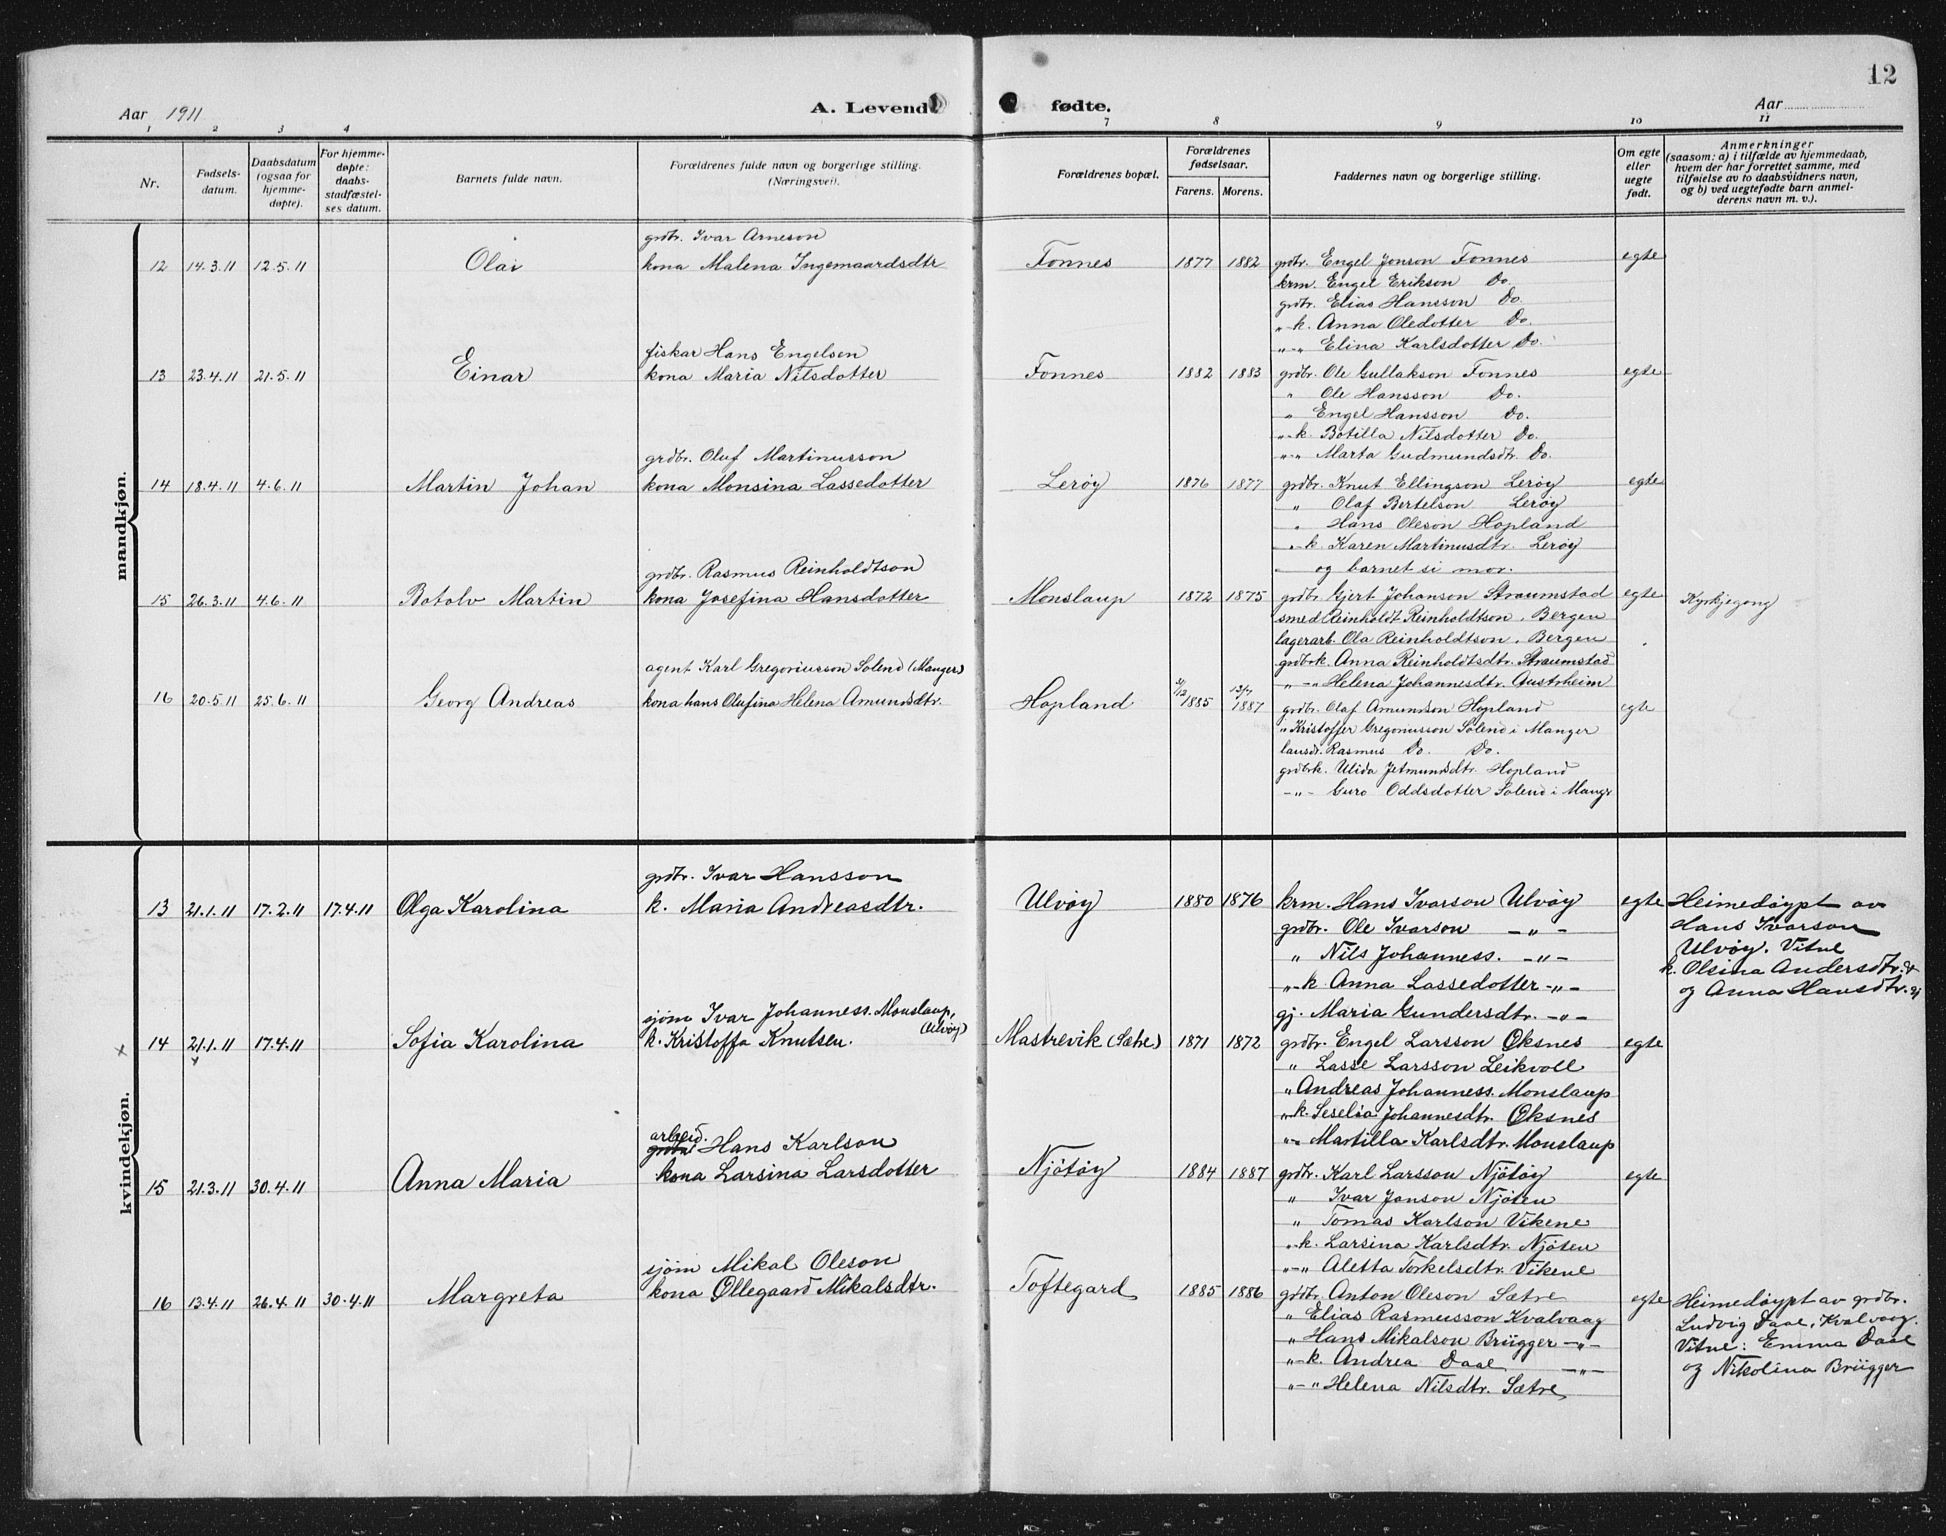 12
Aar 1911
A. Levende
fødte.
Aar
1 2 3 4 7 8 9 10 11
Nr.
Fødsels-
datum.
Daabsdatum
(ogsaa for
hjemme-
døpte).
For hjemme-
døpte:
daabs-
stadfæstel-
ses datum.
Barnets fulde navn.
Forældrenes fulde navn og borgerlige stilling.
(Næringsvei).
Forældrenes bopæl.
Forældrenes
fødselsaar.
Farens. Morens.
Faddernes navn og borgerlige stilling.
Om egte
eller
uegte
født.
Anmerkninger
(saasom: a) i tilfælde av hjemmedaab,
hvem der har forrettet samme, med
tilføielse av to daabsvidners navn,
og b) ved uegtefødte barn anmel-
derens navn m. v.).
mandkjøn.
grdbr. Ivar Arneson
12 14.3.11 12.5.11 Olai kona Malena Ingemaardsdtr Fonnes 1877 1882 grdbr. Engel Jonson Fonnes egte
krm. Engel Erikson Do.
grdbr. Elias Hansson Do.
"k. Anna Oledotter Do.
"-" Elina Karlsdotter Do.
fiskar Hans Engelsen
13 23.4.11 21.5.11 Einar kona Maria Nilsdotter Fonnes 1882 1883 grdbr. Ole Gullakson Fonnes egte
" Ole Hansson Do.
" Engel Hansson Do.
"-k. Botilla Nilsdotter Do.
"-" Marta Gudmundsdtr. Do.
grdbr. Oluf Martinusson
14 18.4.11 4.6.11 Martin Johan kona Monsina Lassedotter Lerøy 1876 1877 grdbr. Knut Ellingson Lerøy egte
" Olaf Bertelson Lerøy
" Hans Oleson Hopland
"-k. Karen Martinusdtr. Lerøy
og barnet si mor.
grdbr. Rasmus Reinholdtson
15 26.3.11 4.6.11 Botolv Martin kona Josefina Hansdotter Monslaup 1872 1875 grdbr. Gjert Johanson Straumstad egte Kyrkjegong
smed Reinholdt Reinholdtson, Bergen
lagerarb. Ola Reinholdtson, Bergen
grdbrk. Anna Reinholdtsdtr. Straumstad
"-" Helena Johannesdtr. Austrheim
agent Karl Gregoriusson Solend (Manger)
16 20.5.11 25.6.11 Georg Andreas kona hans Olufina Helena Amundsdtr. Hopland 1885 1887 grdbr. Olaf Amundson Hopland egte
" Kristoffer Gregoriusson Solend i Manger
lausdr. Rasmus Do. Do.
grdbrk. Ulida Jetmundsdtr. Hopland
-"- Guro Oddsdotter Solend i Mangr
kvindekjøn.
grdbr. Ivar Hansson
13 21.1.11 17.2.11 17.4.11 Olga Karolina k. Maria Andreasdtr. Ulvøy 1880 1876 krm. Hans Ivarson Ulvøy egte Heimedøypt av
grdbr. Ole Ivarson -"- Hans Ivarson
" Nils Johanness. -"- Ulvøy. Vitne
"-k. Anna Lassedotter -"- k. Olsina Andersdtr.
gj. Maria Gundersdtr. -"- og Anna Hansdtr.
sjøm Ivar Johanness. Monslaup,
(Ulvøy)
x 14 21.1.11 17.4.11 Sofia Karolina k. Kristoffa Knutsen. Mastrevik (Sæte) 1871 1872 grdbr. Engel Larsson Øksnes egte
x
" Lasse Larsson Leikvoll
" Andreas Johanness. Monslaup
"k. Seselia Johannesdtr. Øksnes
"-" Martilla Karlsdtr. Monslaup
arbeid.
Hans Karlson
15 21.3.11 30.4.11 Anna Maria kona Larsina Larsdotter Njøtøy 1884 1887 grdbr. Karl Larsson Njøtøy egte
" Ivar Janson Njøten
" Tomas Karlson Vikene
"-k. Larsina Karlsdtr. Njøten
"-" Aletta Torkelsdtr. Vikene
sjøm Mikal Oleson
16 13.4.11 26.4.11 30.4.11 Margreta kona Øllegaard Mikalsdtr. Toftegard 1885 1886 grdbr. Anton Oleson Sætre egte Heimedøypt av grdbr.
" Elias Rasmusson Kvalvaag Ludvig Daae, Kvalvaag.
" Hans Mikalson Brügger -"- Vitne: Emma Daae
"-k. Andrea Daae -"- og Nikolina Brügger
"-" Helena Nilsdtr. Sætre